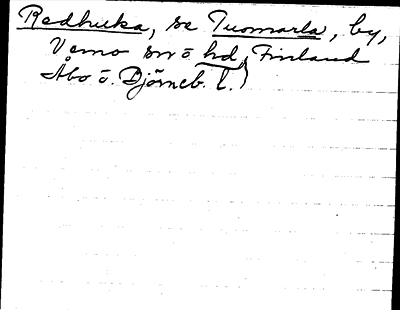 Redhuka, se Tuomarla, by,
Vemo sn o hd, Finland
Åbo o. Björneb. l.)